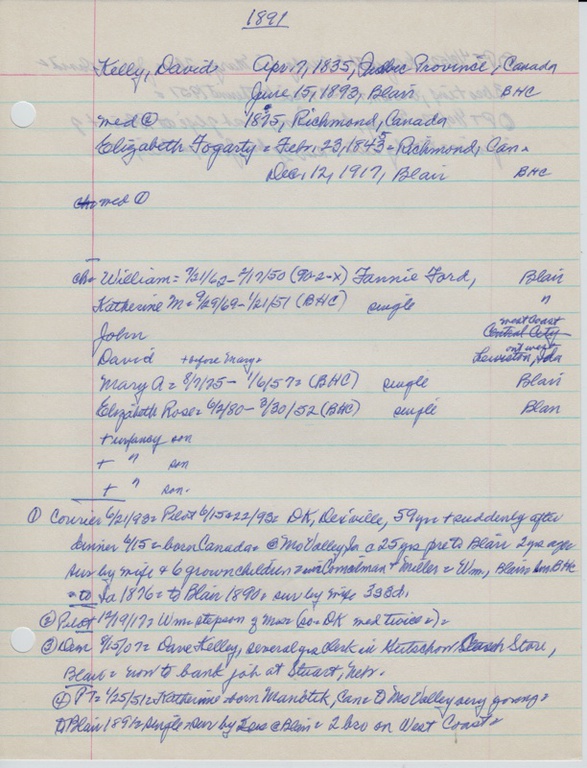 1891
Kelly, David Apr 7, 1835, Province, Canada
June 15, 1893, Blair BHC
med @ 1875, Richmond, Canada
Elizabeth Fogarty = Febr. 23, 1845 = Richmond, Can.
Dec. 12, 1917, Blair BHC
med ①
ch= William = 7/21/62 - 2/17/50 (92-2-x) Fannie Ford, Blair
Katherine M = 9/29/69 - 1/21/51 (BHC) single "
John west Coast Central City
David + before Mary + out west Lewiston, Ida
Mary A = 8/7/75 - 1/6/57 = (BHC) single Blair
Elizabeth Rose = 6/2/80 - 3/30/52 (BHC) single Blair
+ infancy son
+ " son
+ " son.
① Courier 6/21/93 = Pilot 6/15+22/93 = DK, DeSville, 59 yrs + suddenly after
dinner 6/15 = born Canada = @ Mo Valley, Ia c 25 yrs pre to Blair 2 yrs ago
sur by wife + 6 grown children = + Miller = Wm, Blair = BHC
= to Ia 1876 = to Blair 1890 = sur by wife 3s3d.
② Pilot 12/19/17 = Wm = stepson of Mrs (so = DK med twice =) =
③ Dem 8/15/07 = Dave Kelly, several yrs clerk in Store,
Blair = now to bank job at Stuart, Nebr.
④ PT = 1/25/51 = Katherine = born Manotik, Can = to Mo Valley very young =
to Blair 1891 = single = sur by @ Blair = 2 bro on West Coast =